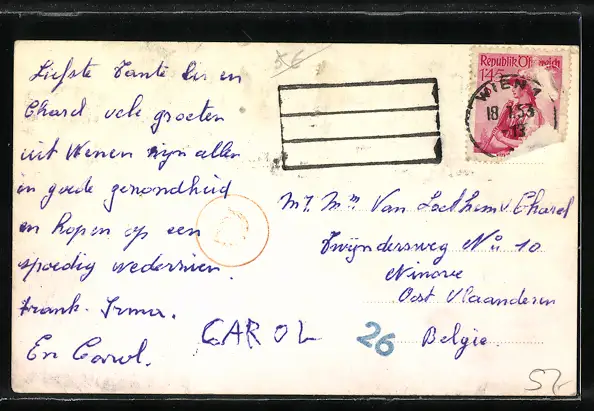 56
Liefste Tante Lis en
Chard vele groeten
uit Wenen zijn allen
in goede gezondheid
en hopen op een
spoedig wederzien.
Frank. Irma.
En Carol.
CAROL
Republik Österreich
1'45
WIEN
18 53
13
Mr. Mm Van Lathem Chard
Twijndersweg No 10
Ninove
Oost Vlaanderen
Belgie.
26
52-